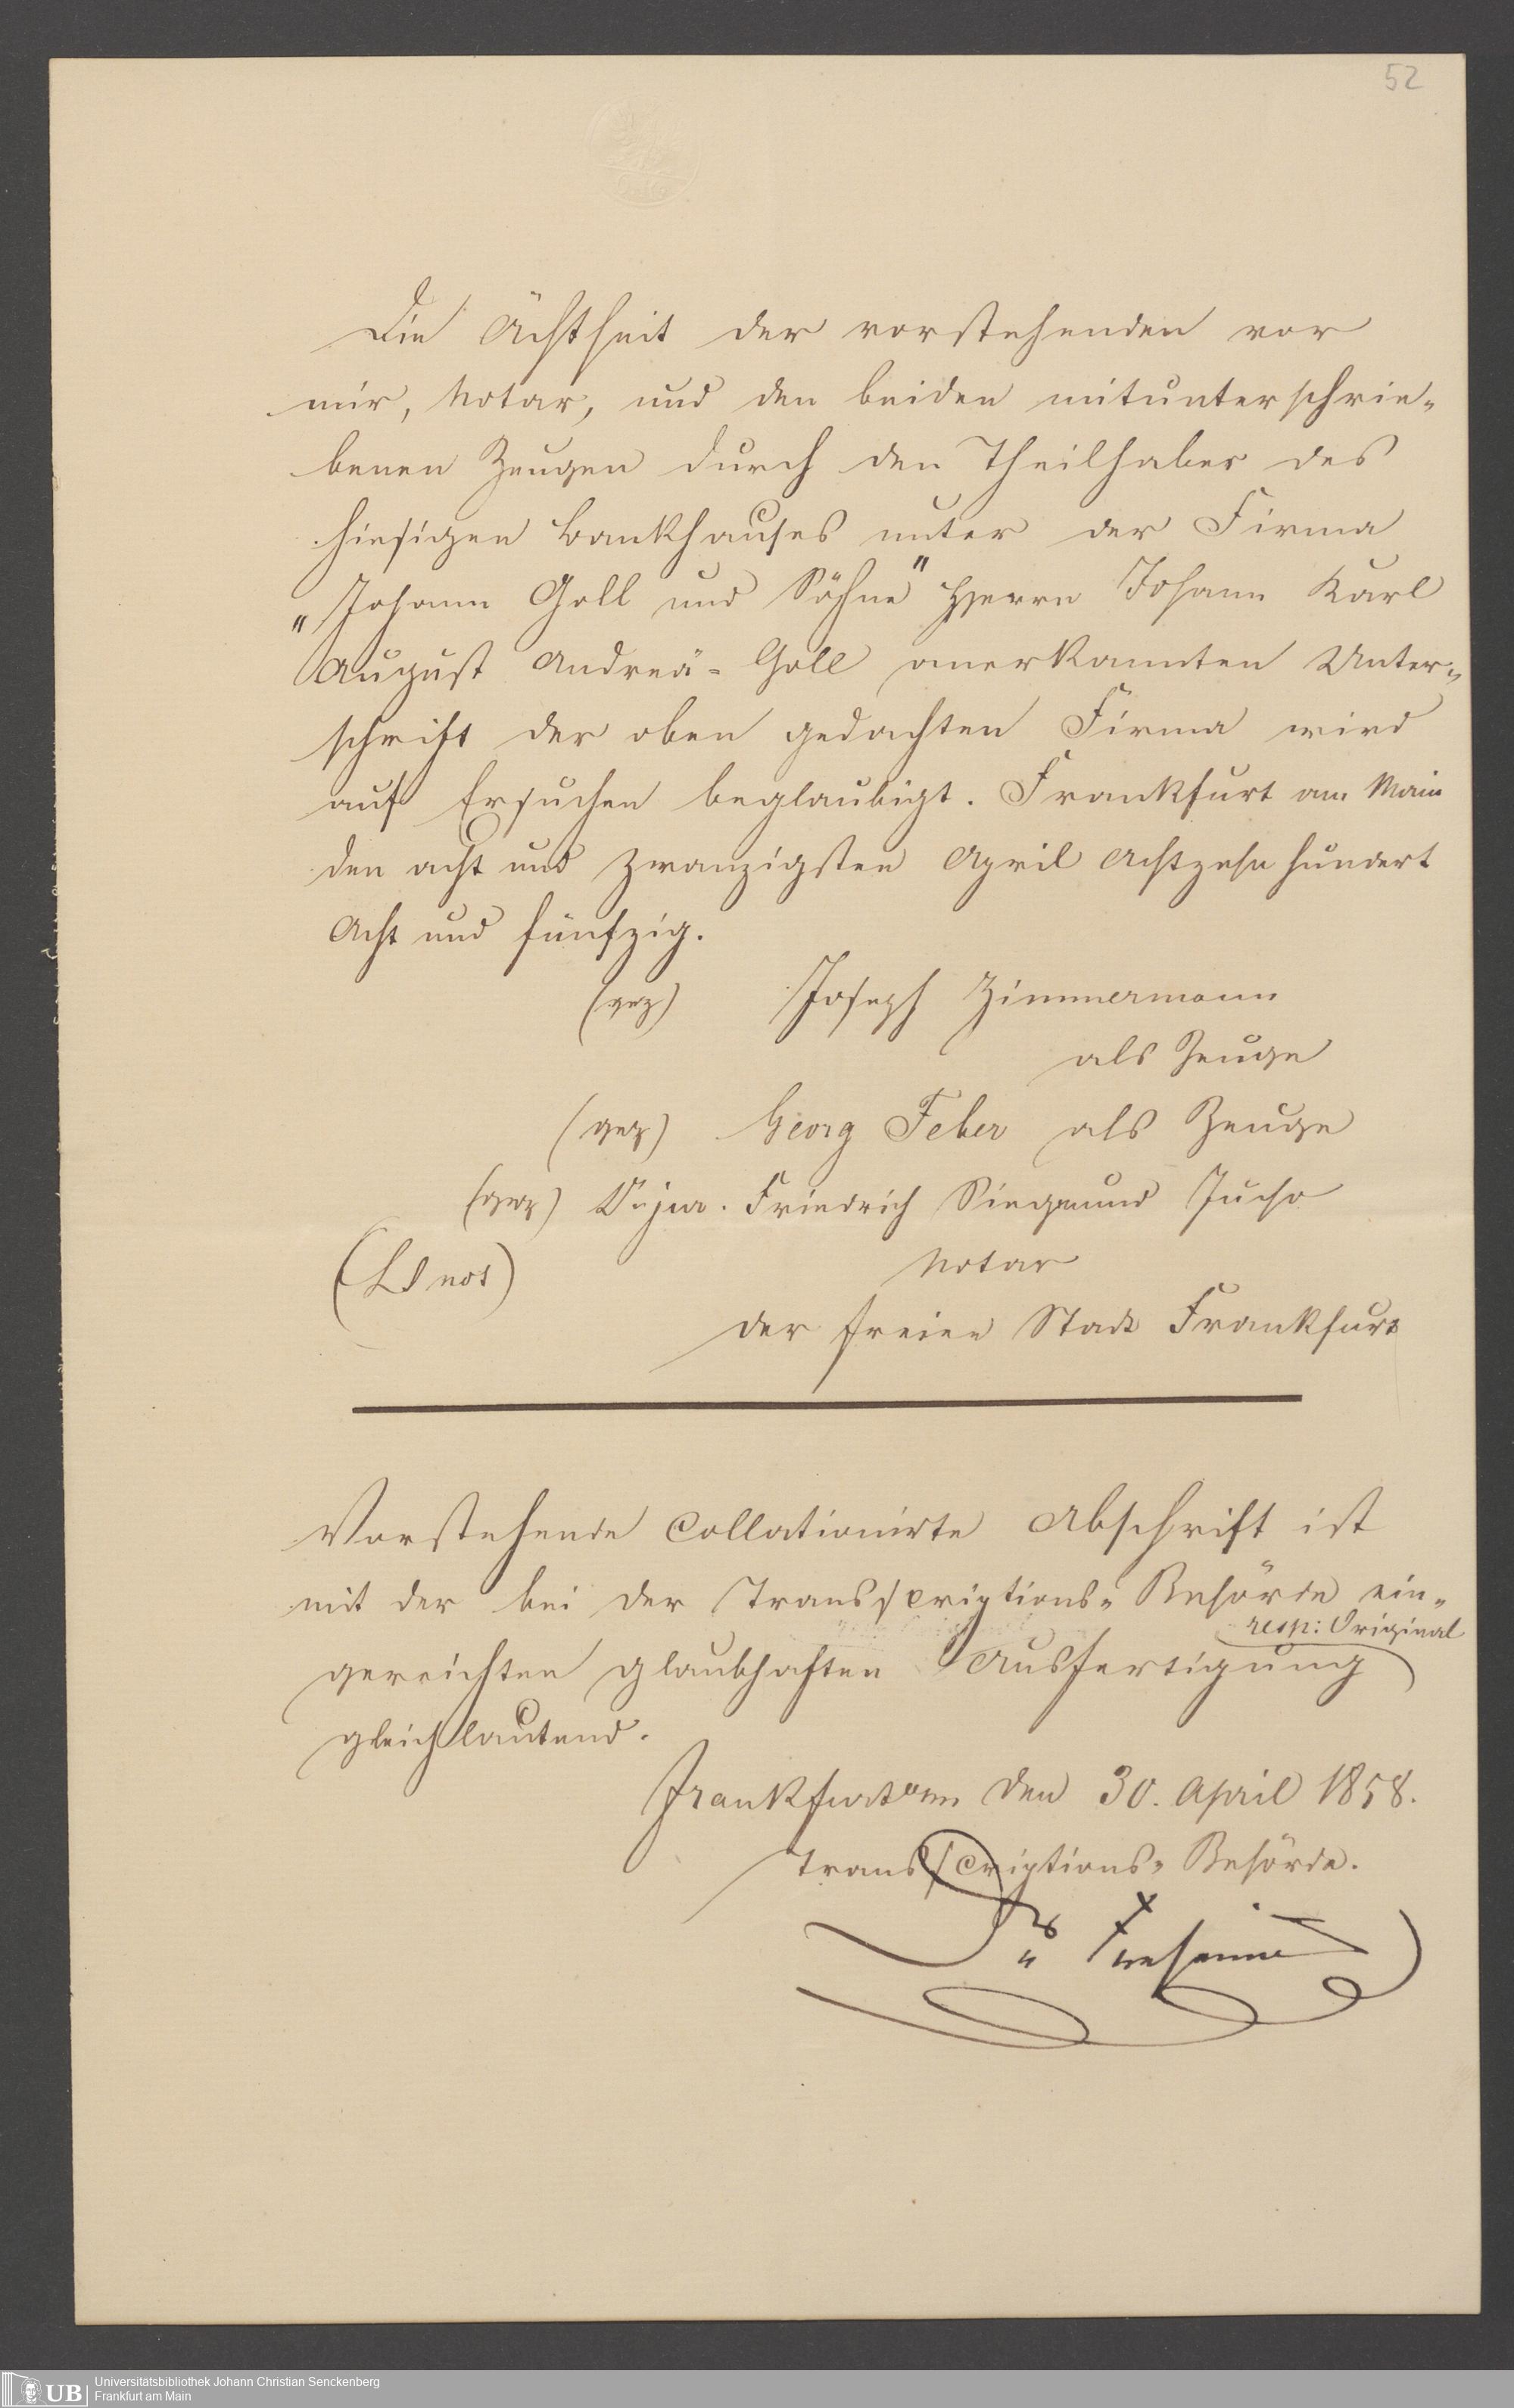 52
Die Ächtheit der vorstehenden vor
mir, Notar, und den beiden mitunterschrie-
benen Zeugen durch den Theilhaber des
hiesigen Bankhauses unter der Firma
„Johann Goll und Söhne" Herrn Johann Karl
August Andreä-Goll anerkannten Unter-
schrift der oben gedachten Firma wird
auf Ersuchen beglaubigt. Frankfurt am Main
den acht und zwanzigsten April Achtzehnhundert
Acht und fünfzig.
(gez) Joseph Zimmermann
als Zeuge
(gez) Georg Feber als Zeuge
(gez) Dr jur. Friedrich Siegmund Jucho
(LS not) Notar
der freien Stadt Frankfurt
Vorstehende Collationirte Abschrift ist
mit der bei der Transscriptions-Behörde ein-
resp: Original
gereichten glaubhaften Ausfertigung
gleichlautend.
Frankfurt a/m den 30. April 1858.
Transscriptions-Behörde.
Dr
UB Universitätsbibliothek Johann Christian Senckenberg
Frankfurt am Main